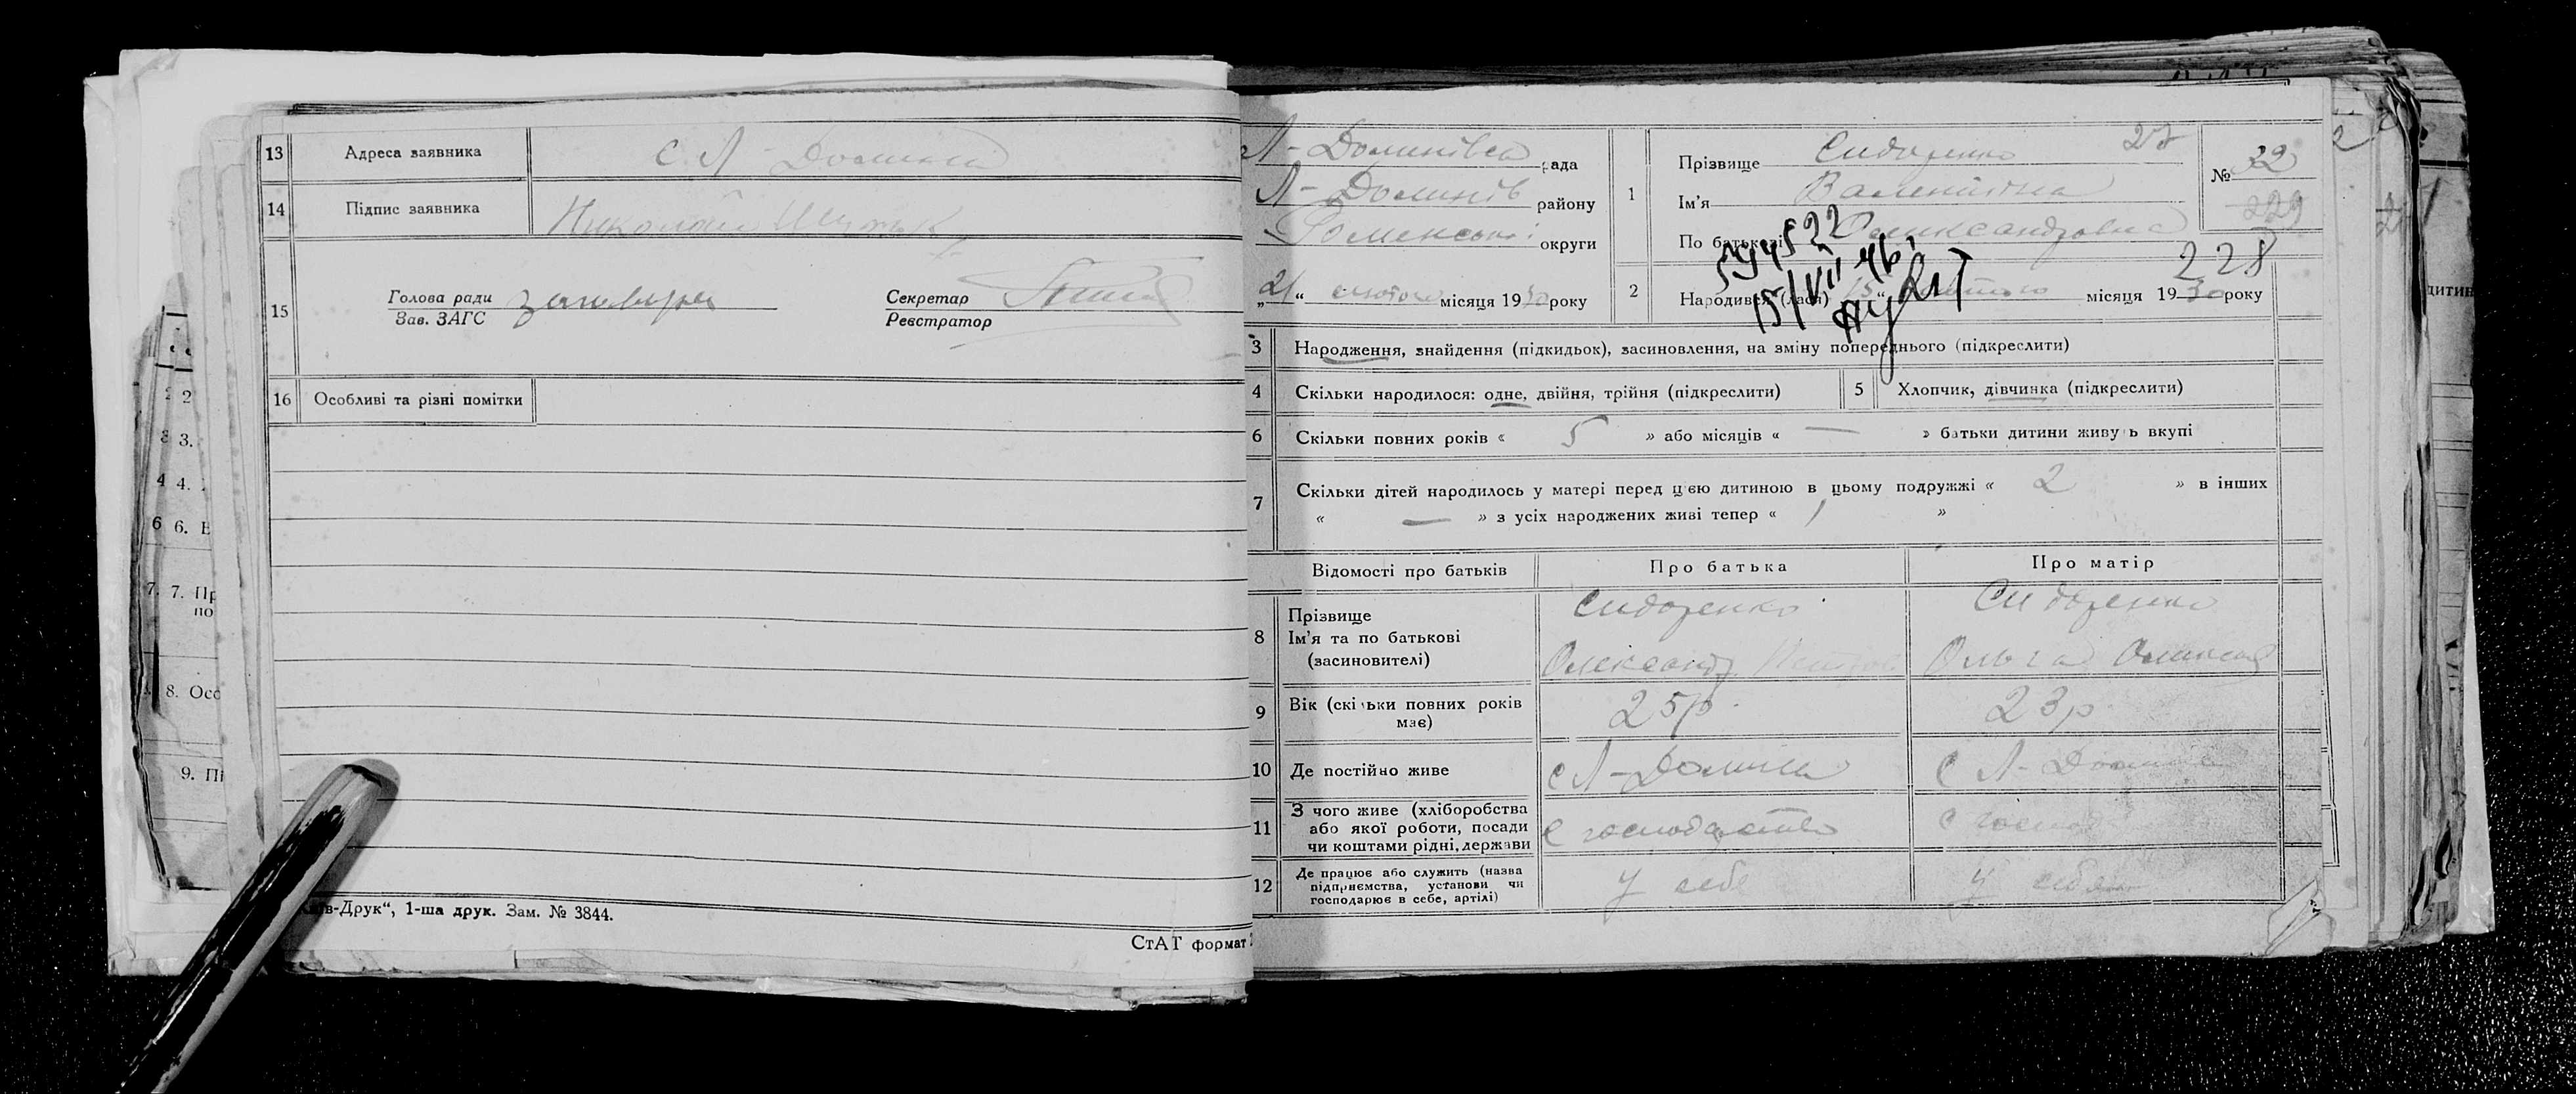 13 Адреса заявника с Л-Долина
14 Підпис заявника Николай
15 Голова ради
Зав. ЗАГС
Секретар
Реєстратор
16 Особливі та різні помітки
2
3.
4 4.
6 6. В
7. 7. Пр
по
8. Осо
9. Пі
Київ-Друк“, 1-ша друк. Зам. № 3844.
СтАТ формат
Л-Долинівсь рада
Л-Долинів району
Роменської округи
„21“ лютого місяця 1930 року
1 Прізвище Сидоренко 27
Ім'я Валентина
По батькові Олександровна
№ 32
229
228
522
15/VII
2 Народився (лася) 15 “ лютого місяця 1930 року
3 Народження, знайдення (підкидьок), засиновлення, на зміну попереднього (підкреслити)
4 Скільки народилося: одне, двійня, трійня (підкреслити) 5 Хлопчик, дівчинка (підкреслити)
6 Скільки повних років « 5 » або місяців « — » батьки дитини живуть вкупі
7 Скільки дітей народилось у матері перед цією дитиною в цьому подружжі « 2 » в інших
« — » з усіх народжених живі тепер « 1 »
Відомості про батьків Про батька Про матір
8 Прізвище Сидоренко Сидоренко
Ім'я та по батькові
(засиновителі) Олександр Петров Ольга
9 Вік (скільки повних років має) 25р. 23р.
10 Де постійно живе с Л-Долина с Л-Долина
11 З чого живе (хліборобства
або якої роботи, посади
чи коштами рідні, держави
с господарства с господ
12 Де працює або служить (назва
підприємства, установи чи
господарює в себе, артілі)
у себе у себе
дитин